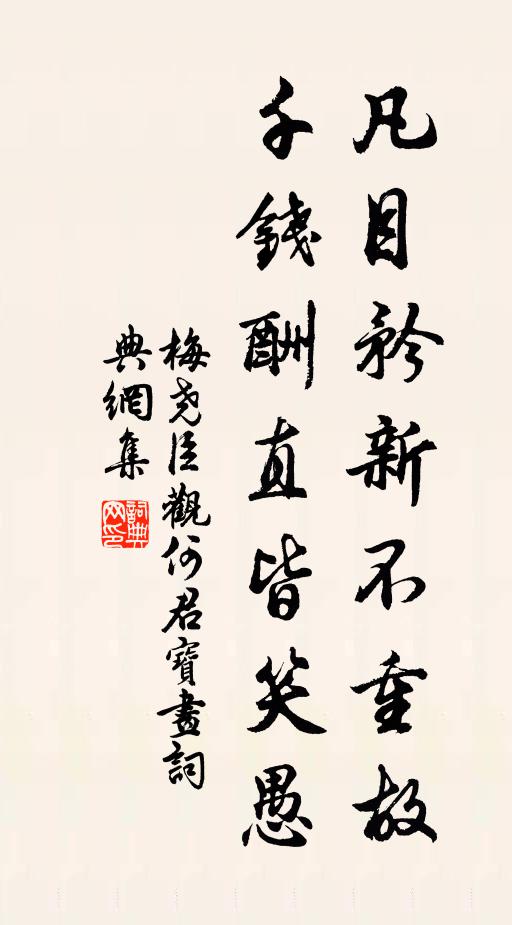 凡目矜新不重故
千錢酬直皆笑愚
梅尧臣觀何君寶畫詞
典網集
詞典
网印